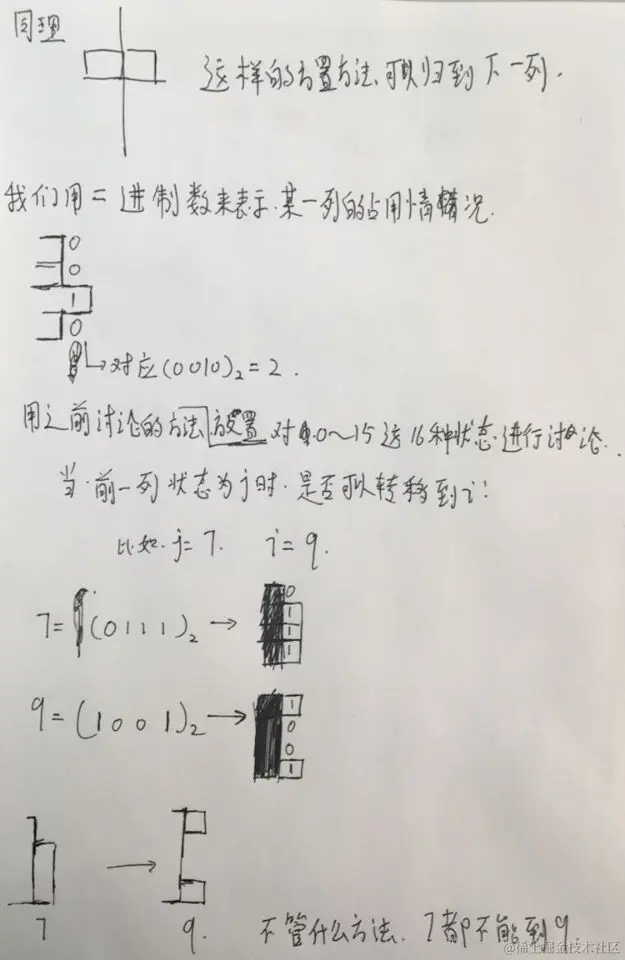 同理
这样的方置方法,可以归到下一列.
我们用二进制数来表示.某一列的占用情况.
0
0
1
0
对应(0010)₂=2.
用之前讨论的方法放置对0~15这16种状态进行讨论.
当前一列状态为j时.是否可以转移到i:
比如.j=7. i=9.
7=(0111)₂→
0
1
1
1
9=(1001)₂→
1
0
0
1
7
9.
不管什么方法.7都不能到9.
@稀土掘金技术社区